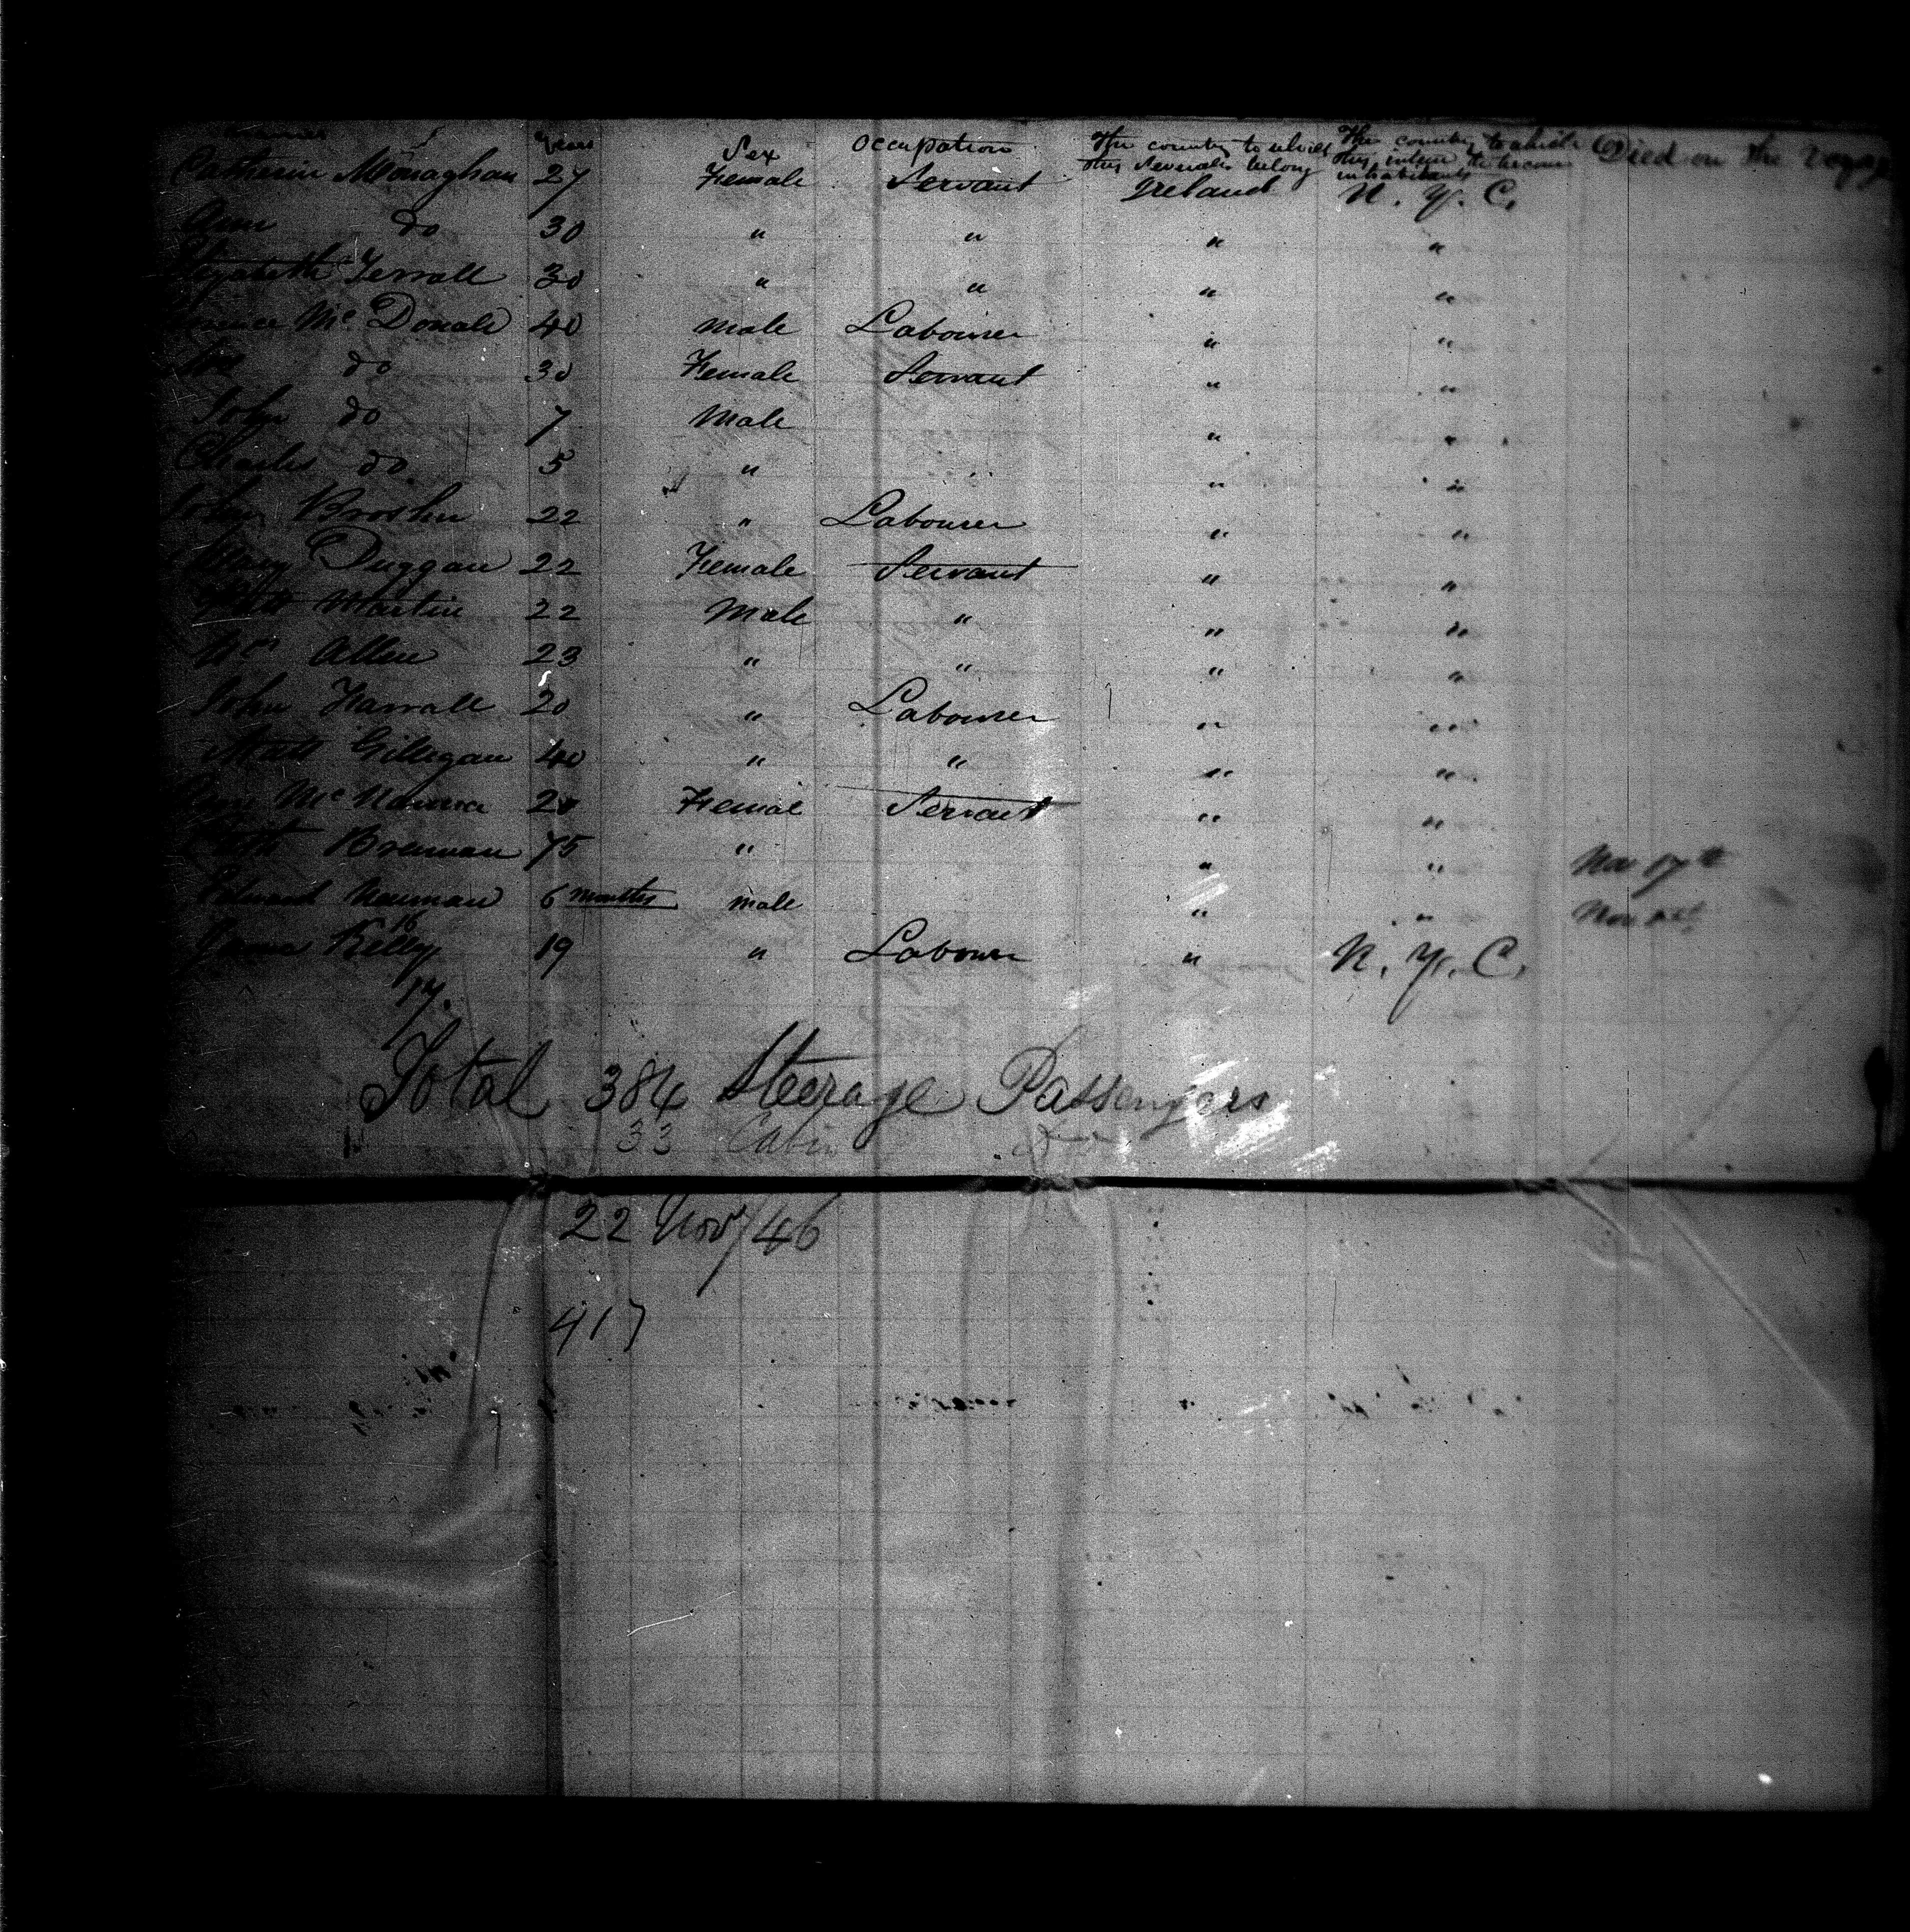 Names Years Sex Occupation The country to which they severally belong The country to which they intend to become inhabitants Died on the Voyage
Catherin Monaghan 27 Female Servant Ireland N. Y. C.
Ann do 30 " " " "
Elizabeth Ferrall 30 " " " "
Mc Donald 40 Male Labourer " "
do 30 Female Servant " "
John do 7 Male " "
Charles do 5 " " "
John Broshn 22 " Labourer " "
Mary Duggan 22 Female Servant " "
Patt Martin 22 Male " " "
Wm Allen 23 " " " "
John Farrall 20 " Labourer " "
Matt Gillegan 40 " " " "
Ann McNamra 20 Femal Servant " "
Brennan 75 " " " Nov 17th
Edward Newman 6 months male " " Nov
16
James Kelly 19 " Labourer " N. Y. C.
17.
Total 384 Steerage Passengers
33 Cabin Do
22 Nov/46
417